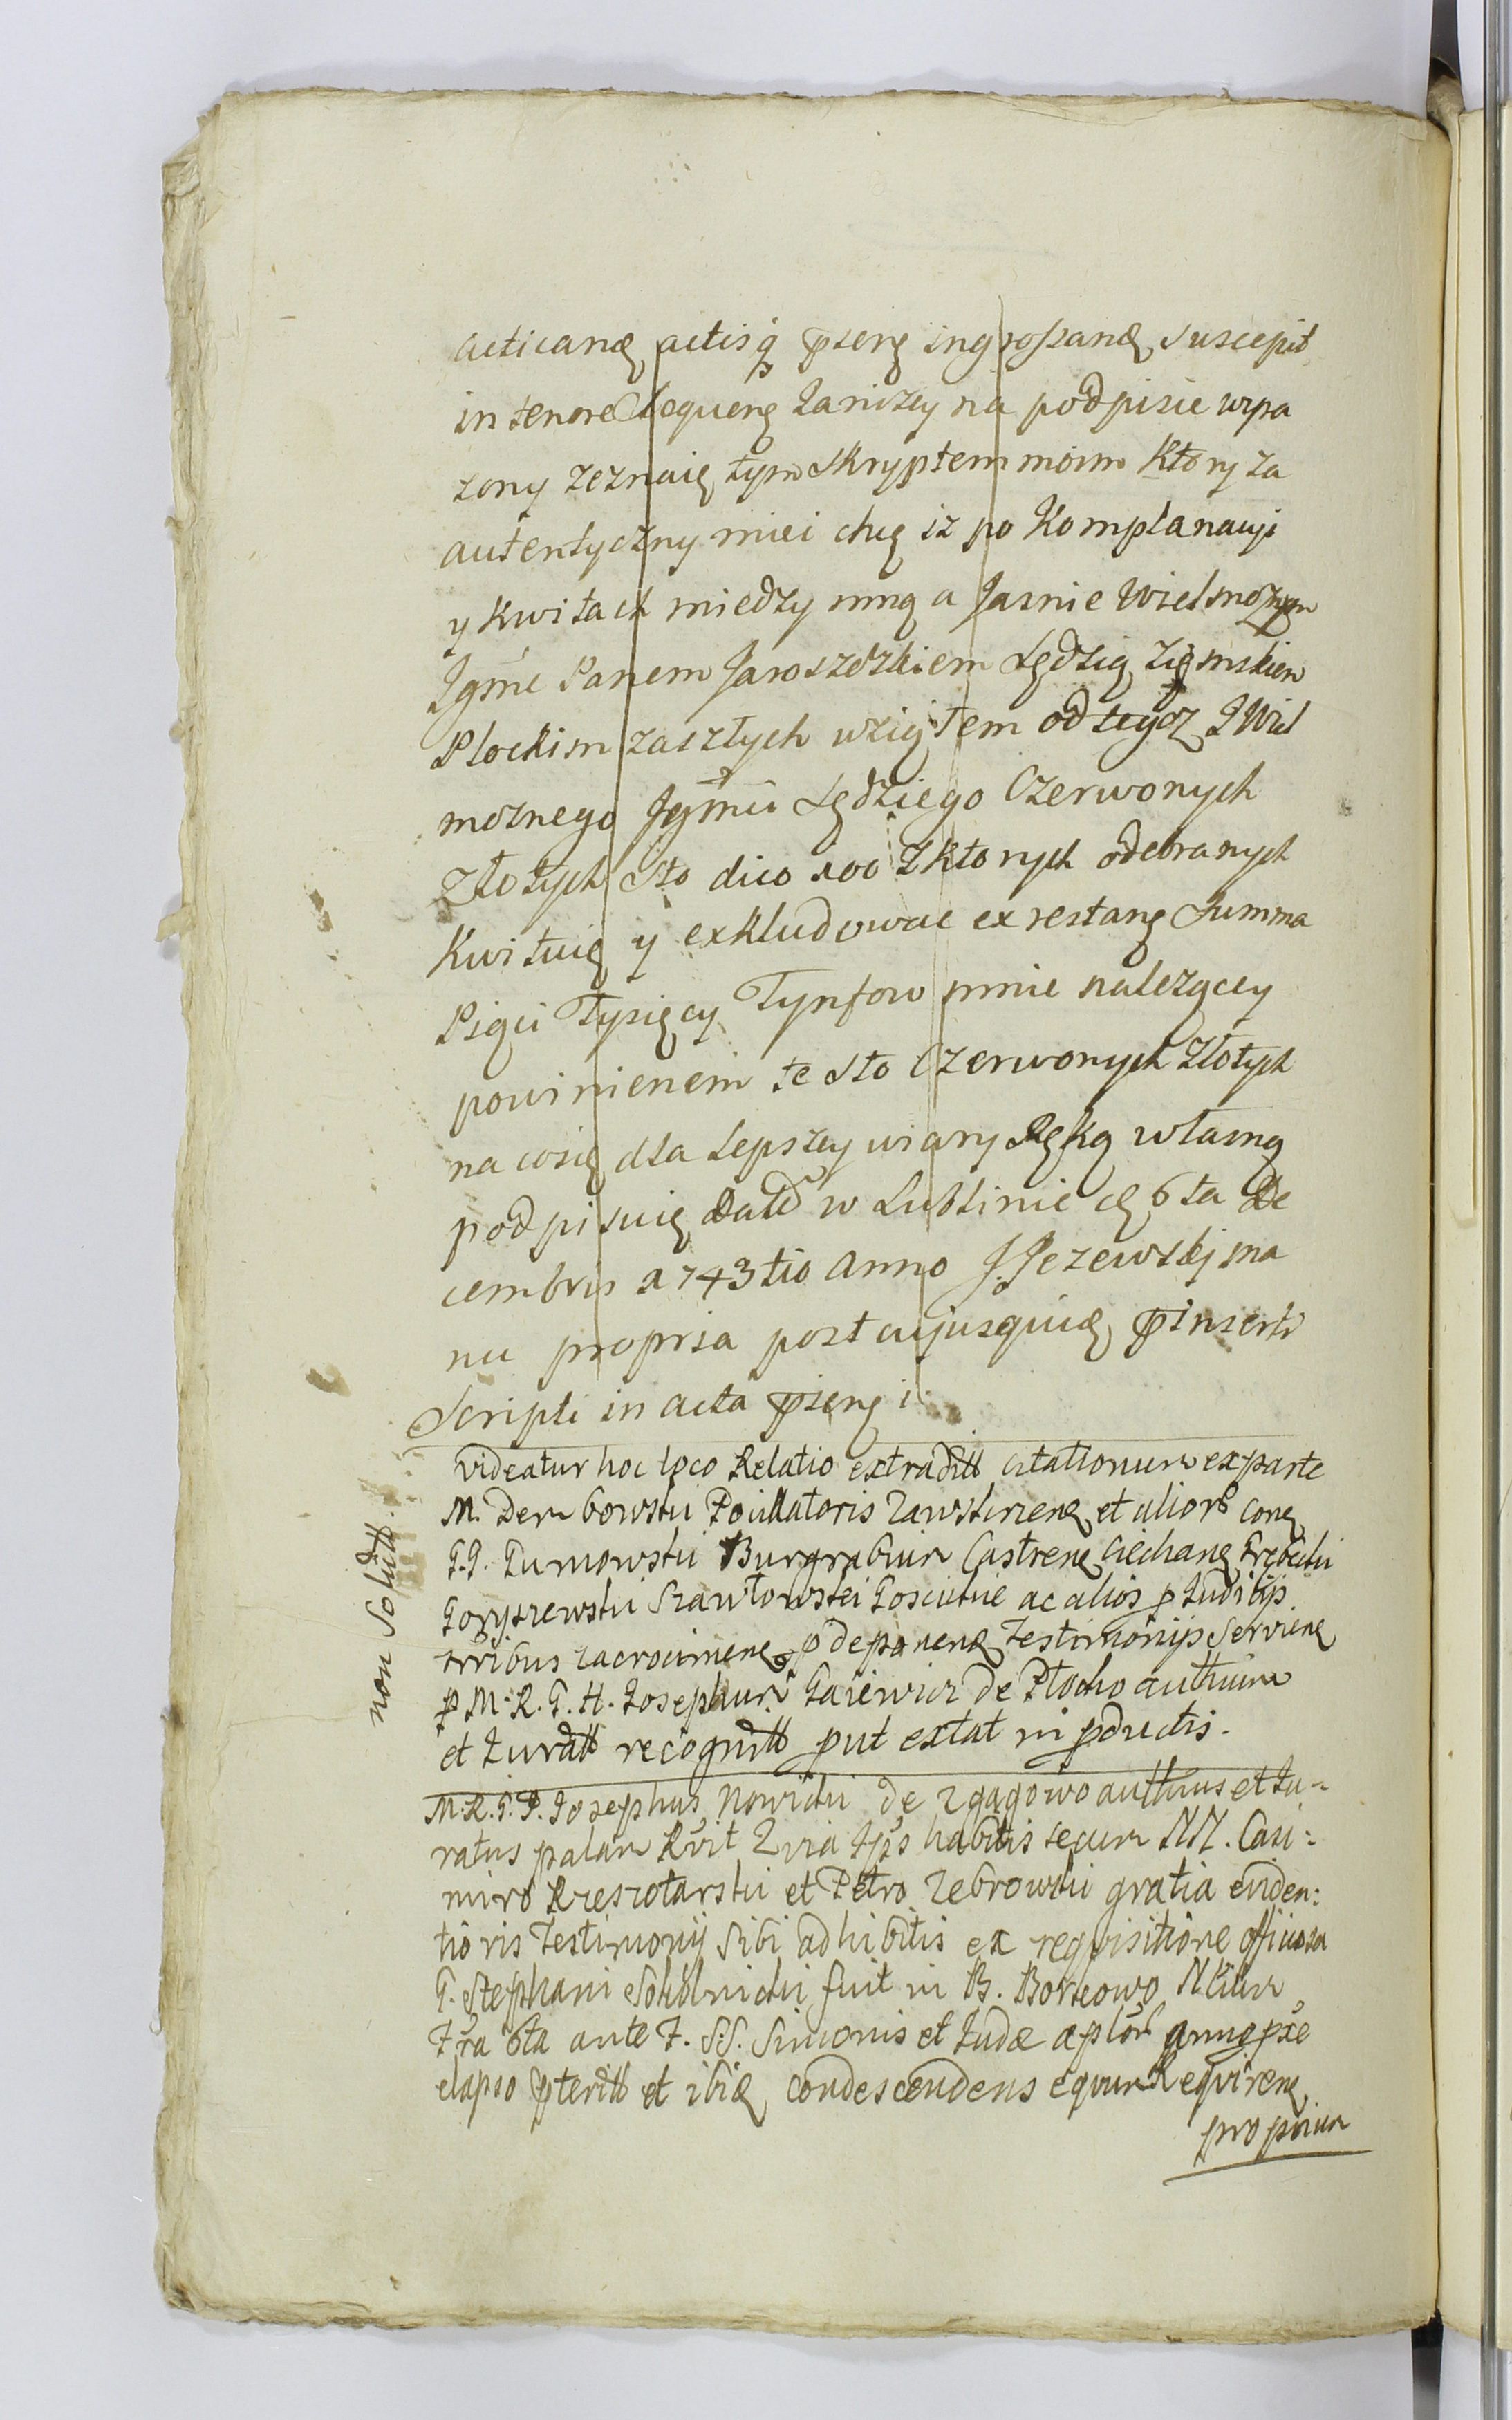 acticand actisq̃ pseng ingrossand suscepit
in tenore sequeng Ja niżey na podpisie wyra
zony zeznaię tym skryptem moim Ktory za
autentyczny miei chcę iz po Komplanacyi
y kwitach miedzy mną a Jasnie Wielmoznym
Jgmc Panem Jaroszewskiem Sędzią Zięmskiem
Plockim zaszłych wziąłem od tegoz JWiel
moznego Jgmci Sędziego Czerwonych
Złotych Sto dico 100 z ktorych odebranych
Kwituię y exkludowac ex restang Summa
Pięci Tysięcy Tynfow mnie nalezącey
powinienem te Sto Czerwonych Złotych
na cosię dla Lepszey wiary Ręką własną
podpisuię Datt w Lublinie 6ta De
cembris 1743tio Anno J. Jezewski ma
nu propria post cujusquid pinserti
Scripti in acta pseng i
videatur hoc loco Relatio extraditt citationum ex parte
M. Dembowski Pocillatoris Zawskrzeng et aliorb cong
G.G. Rumowski Burgrabium Castreng Ciechang
Goryszewski Szawłowski ac alios p Judicijs
trribus zacrocimeng p deponend Testimonijs
p M. R. G. H. Josephum Gaiewicz de Płocko authum
et Juratt recognitt put extat in pductis.
non Solutt.
M. R. G. P. Josephus Nowicki de Zgagowo authnus et Ju-
ratus palam Rvit Qvia Jps habitis secum NN. Casi:
miro Rzeszotarski et Petro Zebrowski gratia eviden:
tioris Testimonij Sibi adhibitis ex reqvisitione officiosa
G. Stephani Sokolnicki fuit in B. Borzeowo
Fra 6ta ante F. S.S. Simonis et Judæ aplorb anno pxe
elapso pteritt et ibid condescendens eqvum Reqvireng
proprium